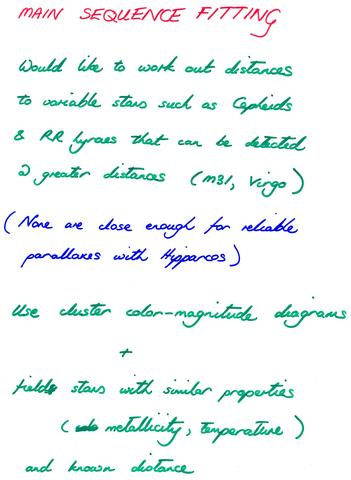 MAIN SEQUENCE FITTING
Would like to work out distances
to variable stars such as Cepheids
& RR Lyraes that can be detected
@ greater distances (M31, Virgo)
(None are close enough for reliable
parallaxes with Hipparcos)
Use cluster color-magnitude diagrams
+
field stars with similar properties
(metallicity, temperature)
and known distance